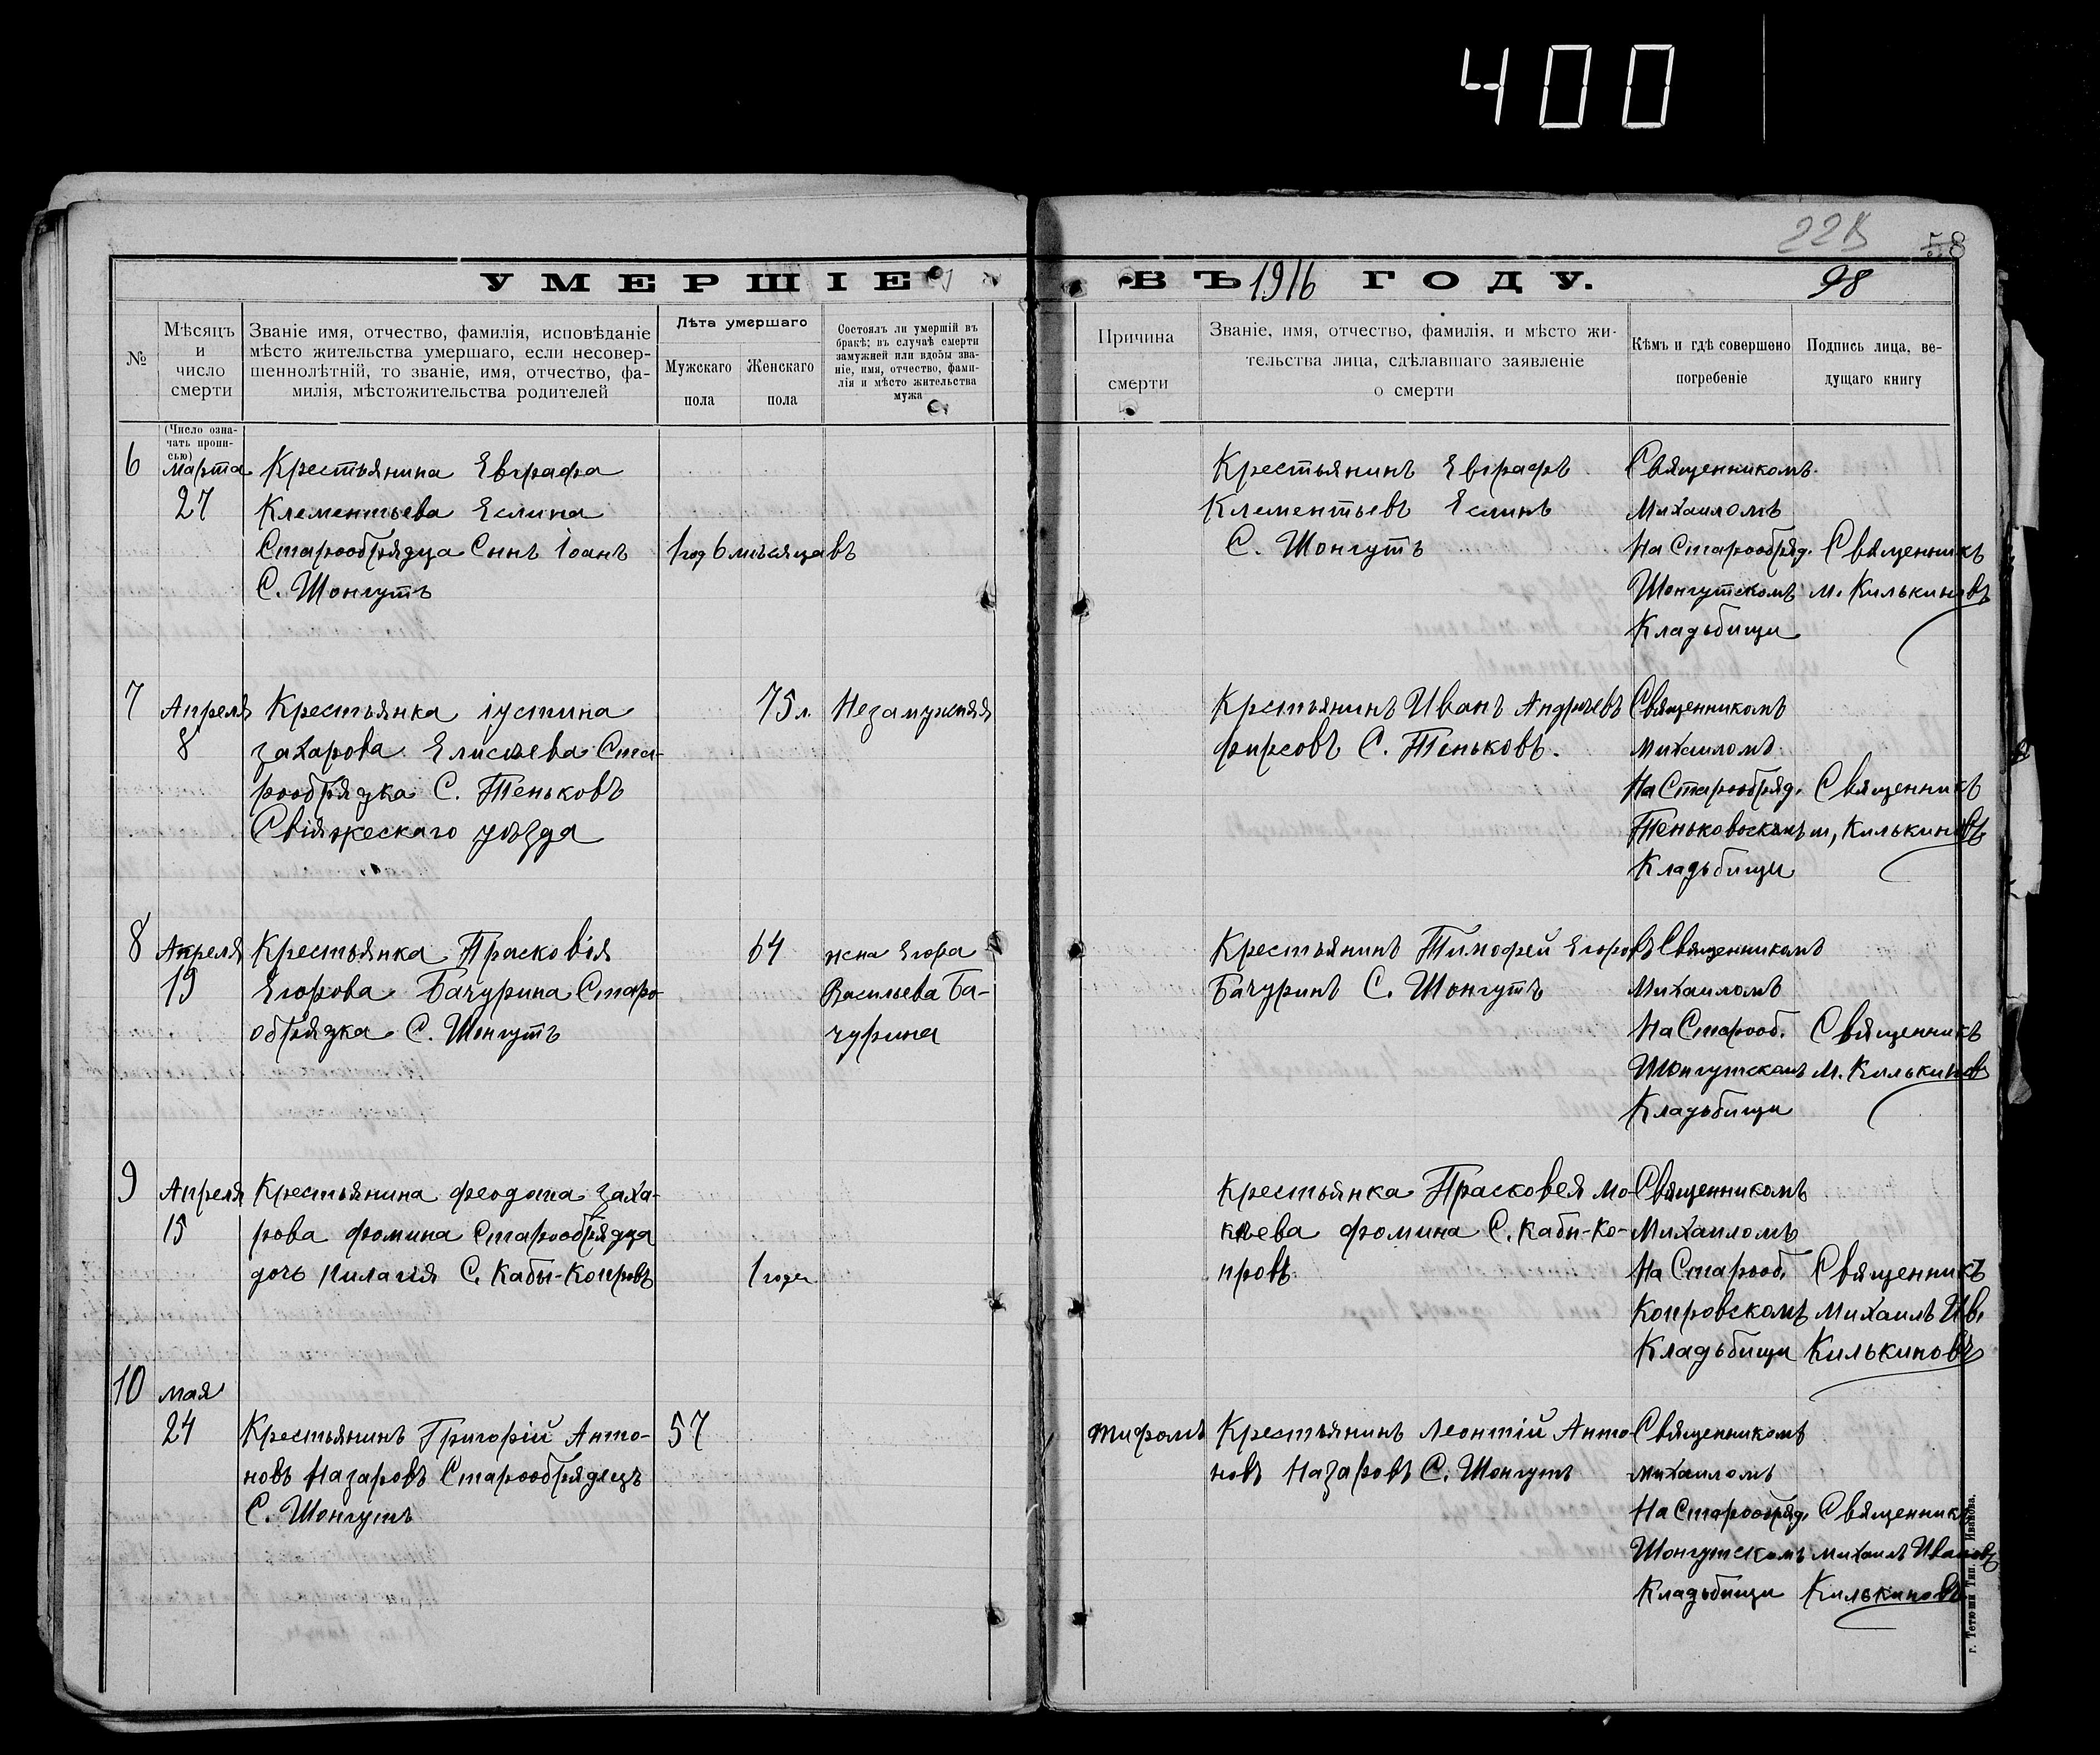 400
22В
58
УМЕРШІЕ ВЪ 1916 ГОДУ.
98
№
Мѣсяцъ
и
число
смерти
Званіе имя, отчество, фамилія, исповѣданіе
мѣсто жительства умершаго, если несовер-
шеннолѣтній, то званіе, имя, отчество, фа-
милія, мѣстожительства родителей
Лѣта умершаго
Мужскаго
пола
Женскаго
пола
Состоялъ ли умершій въ
бракѣ; въ случаѣ смерти
замужней или вдовы зва-
ніе, имя, отчество, фами-
лія и мѣсто жительства
мужа
Причина
смерти
Званіе, имя, отчество, фамилія, и мѣсто жи-
тельства лица, сдѣлавшаго заявленіе
о смерти
Кѣмъ и гдѣ совершено
погребеніе
Подпись лица, ве-
дущаго книгу
(Число озна-
чать пропи-
сью)
6
Марта
27
Крестьянина Евграфа
Клементьева Еслина
Старообрядца Сынъ Іоанъ
С. Шонгутъ
1 год 6 мѣсяцавъ
Крестьянинъ Евграфъ
Клементьевъ Еслинъ
С. Шонгутъ
Священникомъ
Михаиломъ
На Старообряд.
Шонгутскомъ
Кладьбищи
Священникъ
М. Килькиновъ
7
Апреля
8
Крестьянка іустина
Захарова Елисѣева Ста-
рообрядка С. Теньковъ
Свіяжескаго уѣзда
75 л.
Незамужняя
Крстьянинъ Иванъ Андрѣевъ
фирсовъ С. Теньковъ.
Священникомъ
Михаиломъ
На Старообряд.
Теньковоскомъ
Кладьбищи
Священникъ
М, Килькиновъ
8
Апреля
19
Крестьянка Прасковія
Егорова Бачурина Старо-
обрядка С. Шонгутъ
64
жена Егора
Васильева Ба-
чурина
Крестьянинъ Тимофей Егоровъ
Бачуринъ С. Шонгутъ
Священникомъ
Михаиломъ
На Старооб.
Шонгутскомъ
Кладьбищи
Священникъ
М. Килькиновъ
9
Апреля
15
Крестьянина феодота Заха-
рова фомина Старообрядца
дочь Пилагія С. Кабы-Копровъ
1 года
Крестьянка Прасковея Мо-
кѣева фомина С. Кабы-Ко-
провъ
Священникомъ
Михаиломъ
На Старооб.
Копровскомъ
Кладьбищи
Священникъ
Михаилъ Ив.
Килькиновъ
10
мая
24
Крестьянинъ Григорій Анто-
новъ Назаровъ Старообрядецъ
С. Шонгутъ
57
тифомъ
Крестьянинъ Леонтій Анто-
новъ Назаровъ С. Шонгутъ
Священникомъ
Михаиломъ
На Старообряд.
Шонгутскомъ
Кладьбищи
Священникъ
Михаилъ Ивановъ
Килькиновъ